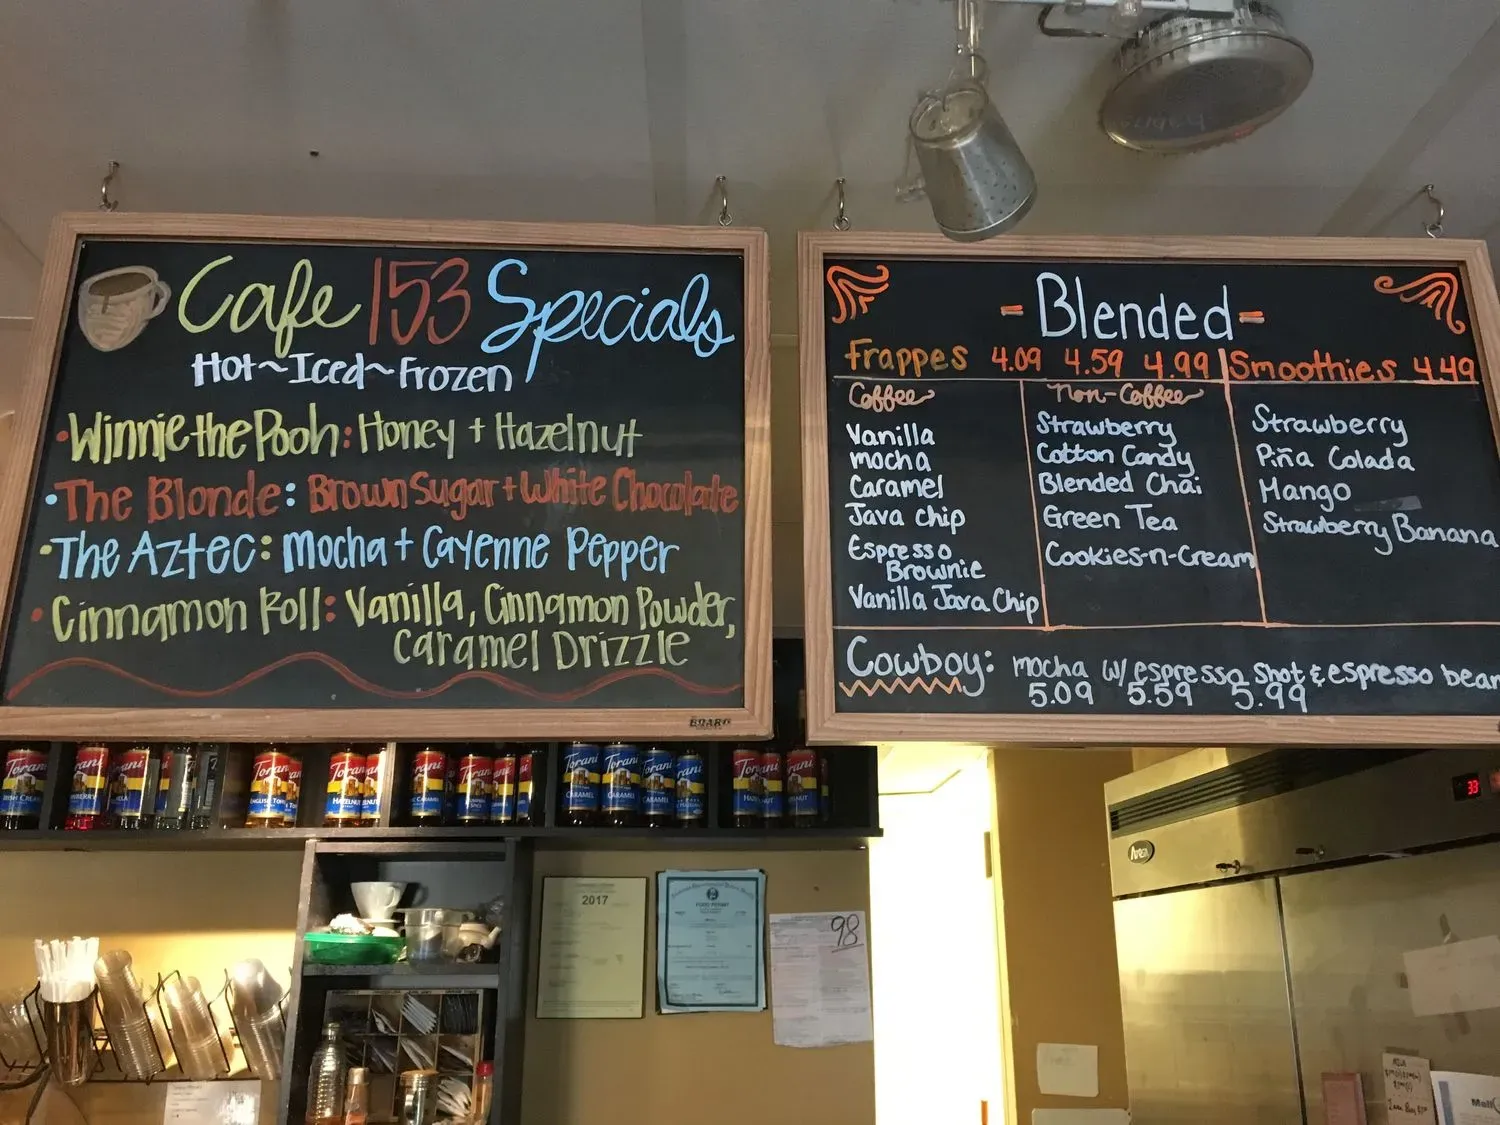 Cafe 153 Specials
Hot~Iced~Frozen
• Winnie the Pooh: Honey + Hazelnut
• The Blonde: Brown Sugar + White Chocolate
• The Aztec: Mocha + Cayenne Pepper
• Cinnamon Roll: Vanilla, Cinnamon Powder,
Caramel Drizzle
BOARD
- Blended -
Frappes 4.09 4.59 4.99
Coffee
Vanilla
mocha
Caramel
Java chip
Espresso
Brownie
Vanilla Java Chip
Non-Coffee
Strawberry
Cotton Candy
Blended Chai
Green Tea
Cookies-n-Cream
Smoothies 4.49
Strawberry
Piña Colada
Mango
Strawberry Banana
Cowboy: mocha w/ espresso shot & espresso bean
5.09 5.59 5.99
Torani
Torani
Torani
Torani
Torani
Torani
Torani
Torani
Torani
HAZELNUT
CARAMEL
CARAMEL
CARAMEL
CARAMEL
HAZELNUT
2017
FOOD PERMIT
98
33